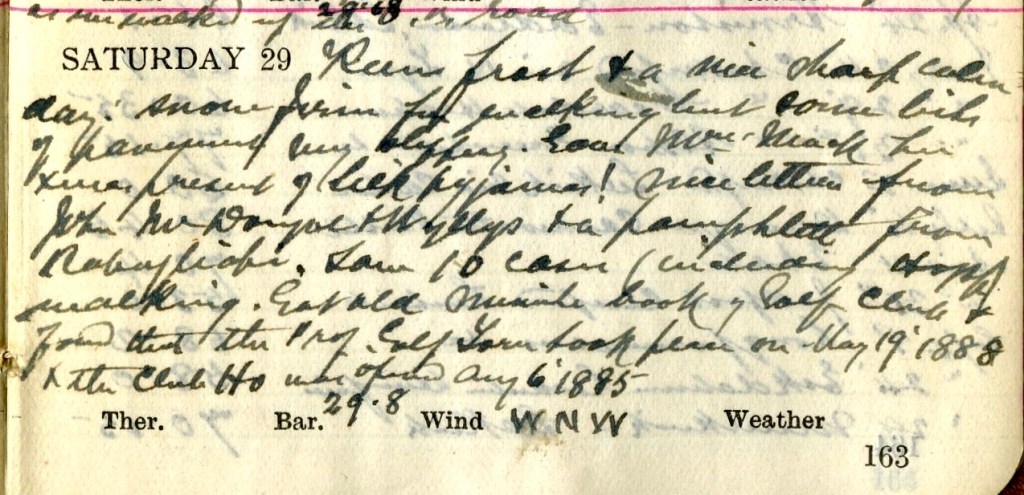 as we walked up the B. road
Ther. Bar. 29.68 Wind
SATURDAY 29 Keen frost & a nice sharp calm
day. Snow firm for walking but some bits
of pavement very slippery. Gave Mrs Mack her
Xmas present of silk pyjamas! Nice letters from
John McDougal & Wyllys & a pamphlett from
Rabagliati. Saw 10 cases (including Hopp
walking. Got old minute book of Golf Club &
found that the Prof. Golf Torn took place on May 19 1888
& the Club Ho was opened Aug 6 1885
Ther. Bar. 29.8 Wind W N W Weather
163